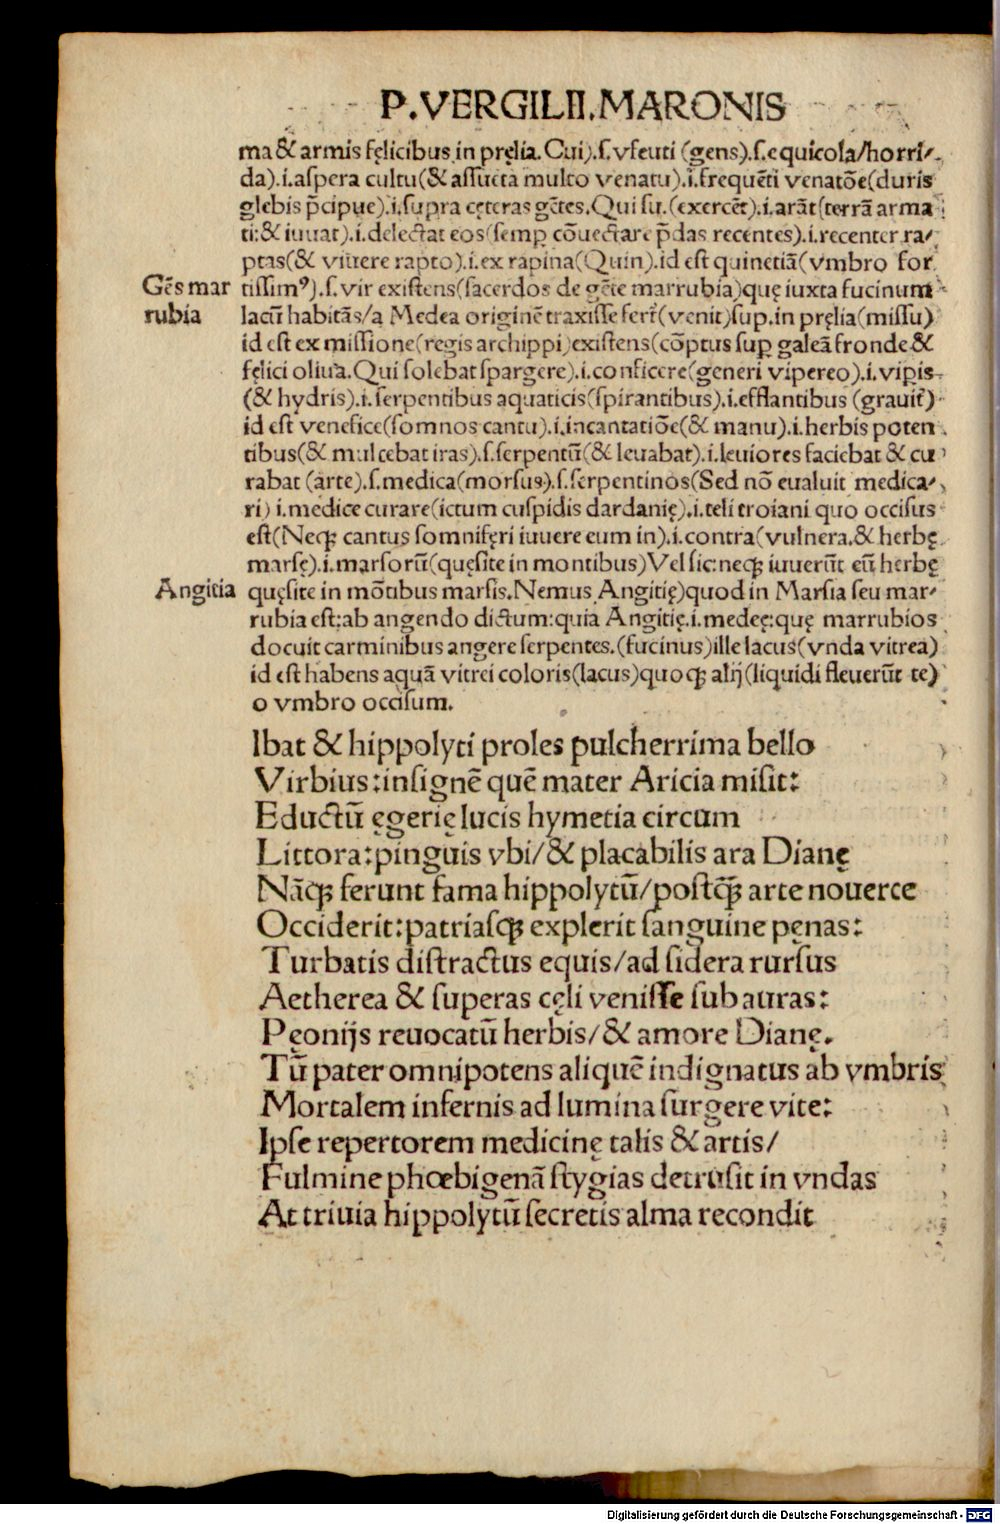 P.VERGILII.MARONIS
ma & armis fęlicibus in pręlia.Cui).ſ.vfeuti (gens).ſ.equicola/horri⸗
da).i.aſpera cultu(& aſſueta multo venatu).i.frequēti venatōe(duris
glebis p̄cipue).i.ſupra cęteras gētes.Qui ſu.(exercēt).i.arāt(terrā arma
ti:& iuuat).i.delectat eos(ſemꝑ cōuectare p̄das recentes).i.recenter ra⸗
ptas(& viuere rapto).i.ex rapina(Quin).id eſt quinetiā(vmbro for
Gēs mar
tiſſimꝰ).ſ.vir exiſtens(ſacerdos de gēte marrubia)quę iuxta fucinum
rubia
lacū habitās/a Medea originē traxiſſe fert̄(venit)ſup.in pręlia(miſſu)
id eſt ex miſſione(regis archippi)exiſtens(cōptus ſuꝑ galeā fronde &
fęlici oliua.Qui ſolebat ſpargere).i.conficere(generi vipereo).i.viꝑis
(& hydris).i.ſerpentibus aquaticis(ſpirantibus).i.efflantibus (grauit̄)
id eſt venefice(ſomnos cantu).i.incantatiōe(& manu).i.herbis poten
tibus(& mulcebat iras).ſ.ſerpentū(& leuabat).i.leuiores faciebat & cu
rabat (arte).ſ.medica(morſus).ſ.ſerpentinos(Sed nō eualuit medica⸗
ri) i.medice curare(ictum cuſpidis dardanię).i.teli troiani quo occiſus
eſt(Neqꝫ cantus ſomniferi iuuere eum in).i.contra(vulnera.& herbę
marſę).i.marſorū(quęſite in montibus)Vel ſic:neqꝫ iuuerūt eū herbę
Angitia
quęſite in mōtibus marſis.Nemus Angitię)quod in Marſia ſeu mar⸗
rubia eſt:ab angendo dictum:quia Angitię.i.medeę:quę marrubios
docuit carminibus angere ſerpentes.(fucinus)ille lacus(vnda vitrea)
id eſt habens aquā vitrei coloris(lacus)quoqꝫ alij(liquidi fleuerūt te)
o vmbro occiſum.
Ibat & hippolyti proles pulcherrima bello
Virbius:inſignē quē mater Aricia miſit:
Eductū ęgerię lucis hymetia circum
Littora:pinguis vbi/& placabilis ara Dianę
Nāqꝫ ferunt fama hippolytū/poſtꝗ̄ arte nouerce
Occiderit:patriaſqꝫ explerit ſanguine pęnas:
Turbatis diſtractus equis/ad ſidera rurſus
Aetherea & ſuperas cęli veniſſe ſub auras:
Pęonijs reuocatū herbis/& amore Dianę.
Tū pater omnipotens aliquē indignatus ab vmbris
Mortalem infernis ad lumina ſurgere vite:
Ipſe repertorem medicinę talis & artis/
Fulmine phœbigenā ſtygias detruſit in vndas
At triuia hippolytū ſecretis alma recondit
Digitalisierung gefördert durch die Deutsche Forschungsgemeinschaft - DFG